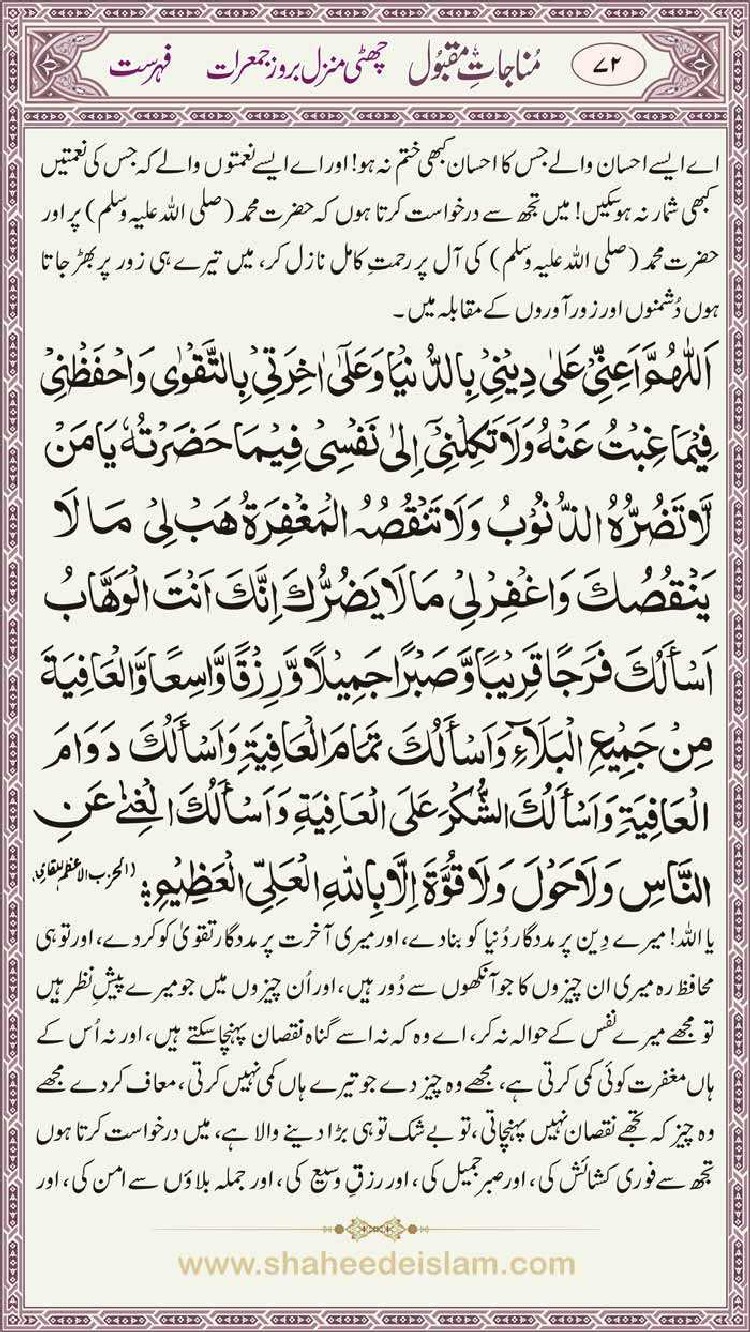 ۷۲ مُناجاتِ مقبُول چھٹی منزل بروز جمعرات فہرست
اے ایسے احسان والے جس کا احسان کبھی ختم نہ ہو! اور اے ایسے نعمتوں والے کہ جس کی نعمتیں
کبھی شمار نہ ہوسکیں! میں تجھ سے درخواست کرتا ہوں کہ حضرت محمد (صلی اللہ علیہ وسلم) پر اور
حضرت محمد (صلی اللہ علیہ وسلم) کی آل پر رحمتِ کامل نازل کر، میں تیرے ہی زور پر بھڑ جاتا
ہوں دُشمنوں اور زور آوروں کے مقابلہ میں۔
اَللّٰهُمَّ اَعِنِّيْ عَلٰى دِيْنِيْ بِالدُّنْيَا وَعَلٰٓى اٰخِرَتِيْ بِالتَّقْوٰى وَاحْفَظْنِيْ
فِيْمَا غِبْتُ عَنْهُ وَلَا تَكِلْنِيْٓ اِلٰى نَفْسِيْ فِيْمَا حَضَرْتُهٗ يَا مَنْ
لَّا تَضُرُّهُ الذُّنُوْبُ وَلَا تَنْقُصُهُ الْمَغْفِرَةُ هَبْ لِيْ مَا لَا
يَنْقُصُكَ وَاغْفِرْ لِيْ مَا لَا يَضُرُّكَ اِنَّكَ اَنْتَ الْوَهَّابُ
اَسْاَلُكَ فَرَجًا قَرِيْبًا وَّصَبْرًا جَمِيْلًا وَّرِزْقًا وَّاسِعًا وَّالْعَافِيَةَ
مِنْ جَمِيْعِ الْبَلَآءِ وَاَسْاَلُكَ تَمَامَ الْعَافِيَةِ وَاَسْاَلُكَ دَوَامَ
الْعَافِيَةِ وَاَسْاَلُكَ الشُّكْرَ عَلَى الْعَافِيَةِ وَاَسْاَلُكَ الْغِنٰى عَنِ
النَّاسِ وَلَا حَوْلَ وَلَا قُوَّةَ اِلَّا بِاللهِ الْعَلِيِّ الْعَظِيْمِ (الحزب الاعظم للقاری)
یا اللہ! میرے دِین پر مددگار دُنیا کو بنادے، اور میری آخرت پر مددگار تقویٰ کو کردے، اور تو ہی
محافظ رہ میری ان چیزوں کا جو آنکھوں سے دُور ہیں، اور اُن چیزوں میں جو میرے پیشِ نظر ہیں
تو مجھے میرے نفس کے حوالہ نہ کر، اے وہ کہ نہ اسے گناہ نقصان پہنچا سکتے ہیں، اور نہ اُس کے
ہاں مغفرت کوئی کمی کرتی ہے، مجھے وہ چیز دے جو تیرے ہاں کمی نہیں کرتی، معاف کردے مجھے
وہ چیز کہ تجھے نقصان نہیں پہنچاتی، تو بے شک تو ہی بڑا دینے والا ہے، میں درخواست کرتا ہوں
تجھ سے فوری کشائش کی، اور صبرِ جمیل کی، اور رزقِ وسیع کی، اور جملہ بلاؤں سے امن کی، اور
www.shaheedeislam.com